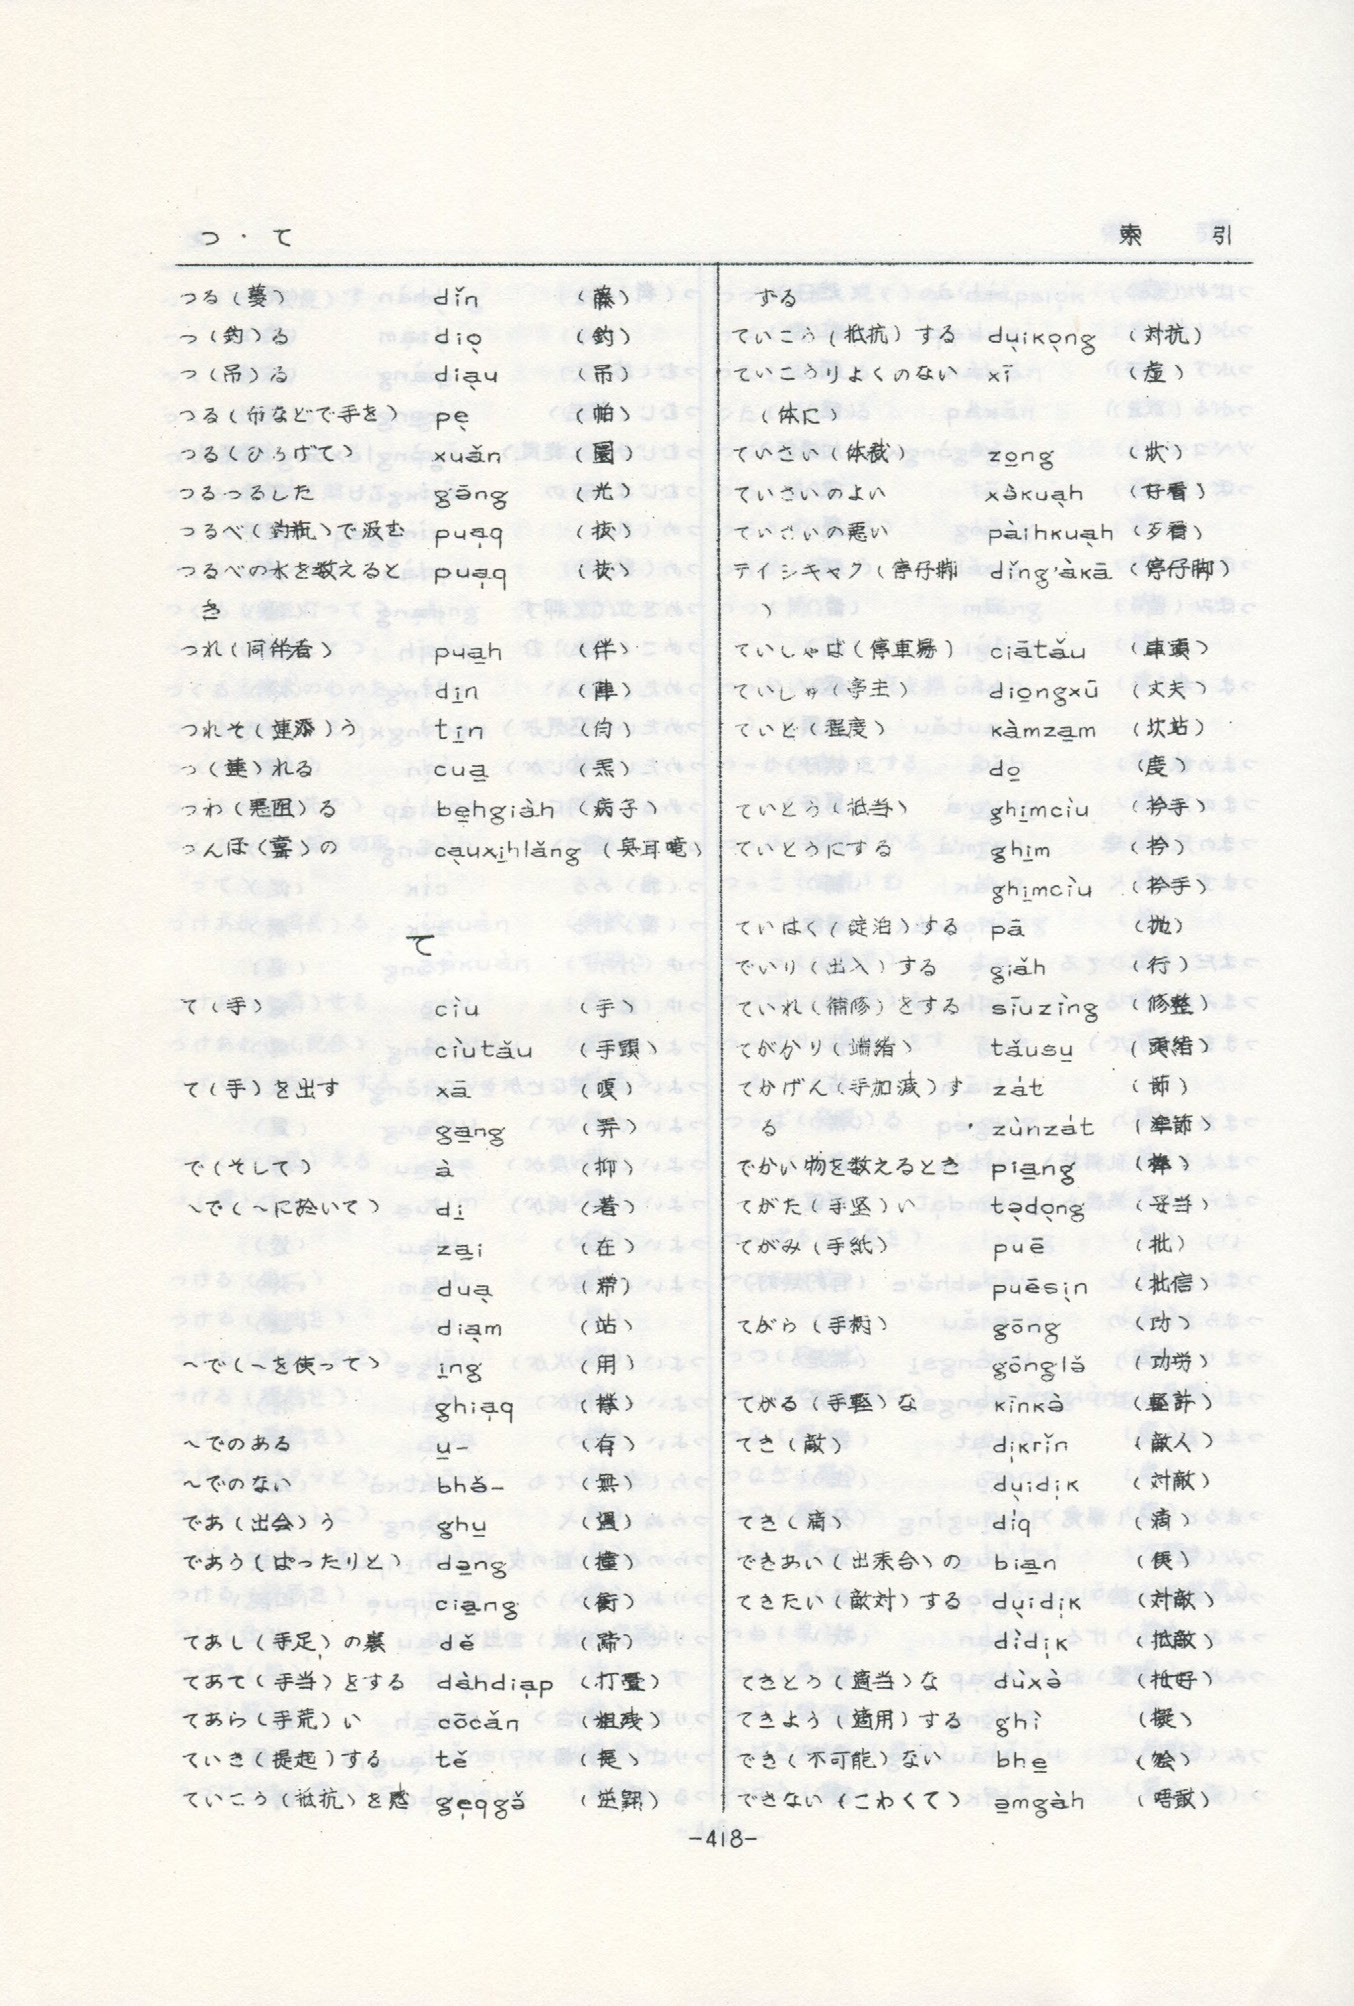 つ・て
索引
つる(蔓) dǐn (藤)
つ(釣)る diọ (釣)
つ(吊)る diạu (吊)
つる(布などで手を) pẹ (帕)
つる(ひろげて) xuǎn (圜)
つるつるした gōng (光)
つるべ(釣瓶)で汲む puạq (拔)
つるべの水を数えると puạq (拔)
き
つれ(同伴者) pua̱h (伴)
di̱n (陣)
つれそ(連添)う ti̱n
つ(連)れる cua̱ (𤆬)
つわ(悪阻)る be̱hgiàh (病子)
つんぼ(聾)の cạuxi̱hlǎng (臭耳聾)
て
て(手) cìu (手)
cìutǎu (手頭)
て(手)を出す xā (嗄)
ga̱ng (弄)
で(そして) à (抑)
〜で(〜に於いて) di̱ (着)
za̱i (在)
duạ (帯)
diạm (站)
〜で(〜を使って) i̱ng (用)
ghiạq
〜でのある u̱- (有)
〜でのない bhǒ- (無)
であ(出会)う ghu̱ (遇)
であう(ばったりと) do̱ng (撞)
cia̱ng (衝)
てあし(手足)の裏 dě (蹄)
てあて(手当)をする dáhdiạp (打疊)
てあら(手荒)い cōcǎn (粗残)
ていき(提起)する tě (提)
ていこう(抵抗)を感 gẹqgǎ
ずる
ていこう(抵抗)する dụikọng (対抗)
ていこうりよくのない xī (虚)
(体に)
ていさい(体裁) zo̱ng (状)
ていさいのよい xòkuạh (好看)
ていさいの悪い páihkuạh (歹看)
テイシキャク(停仔脚 dǐng'àkā (停仔脚)
)
ていしゃば(停車場) ciātǎu (車頭)
ていしゅ(亭主) dio̱ngxū (丈夫)
ていど(程度) kàmza̱m (坎站)
do̱ (度)
ていとう(抵当) ghi̱mcìu (扲手)
ていとうにする ghi̱m (扲)
ghi̱mcìu (扲手)
ていはく(碇泊)する pā (抛)
でいり(出入)する giǎh (行)
ていれ(補修)をする sīuzìng (修整)
てがかり(端緒) táusu̱ (頭緒)
てかげん(手加減)す zát (節)
る zúnzát (準節)
でかい物を数えるとき pia̱ng
てがた(手堅)い tọdọng (妥当)
てがみ(手紙) puē (批)
puēsịn (批信)
てがら(手柄) gōng (功)
gōnglǒ (功労)
てがる(手軽)な kīnkò (軽許)
てき(敵) dịkrǐn (敵人)
dụidịk (対敵)
てき(滴) diq (滴)
できあい(出来合)の bia̱n (便)
てきたい(敵対)する dụidịk (対敵)
dìdịk (抵敵)
てきとう(適当)な dùxò (抵好)
てきよう(適用)する ghì (擬)
でき(不可能)ない bhe̱ (𣍐)
できない(こわくて) a̱mgàh (唔敢)
-418-